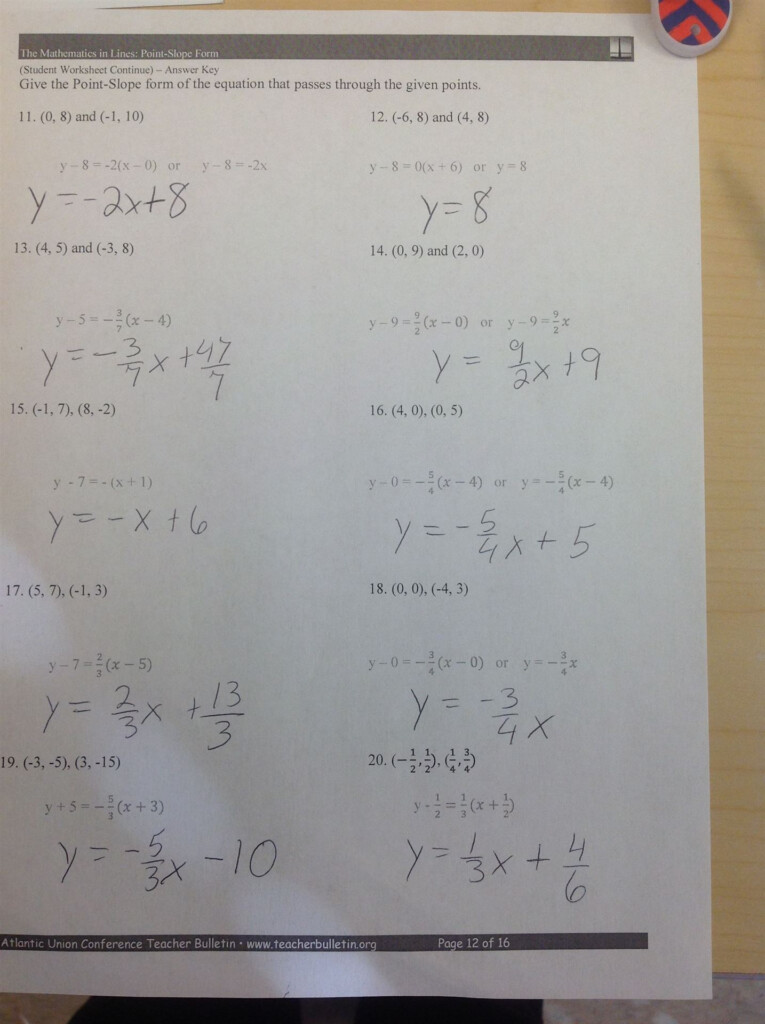 The Mathematics in Lines: Point-Slope Form
(Student Worksheet Continue) – Answer Key
Give the Point-Slope form of the equation that passes through the given points.
11. (0, 8) and (-1, 10)
y – 8 = -2(x – 0) or y – 8 = -2x
y = -2x+8
12. (-6, 8) and (4, 8)
y – 8 = 0(x + 6) or y = 8
y = 8
13. (4, 5) and (-3, 8)
y – 5 = –3/7(x – 4)
y = -3/7x + 47/7
14. (0, 9) and (2, 0)
y – 9 = 9/2(x – 0) or y – 9 = 9/2x
y = 9/2x + 9
15. (-1, 7), (8, -2)
y - 7 = - (x + 1)
y = -x + 6
16. (4, 0), (0, 5)
y – 0 = –5/4(x – 4) or y = –5/4(x – 4)
y = -5/4x + 5
17. (5, 7), (-1, 3)
y – 7 = 2/3(x – 5)
y = 2/3x + 13/3
18. (0, 0), (-4, 3)
y – 0 = –3/4(x – 0) or y = –3/4x
y = -3/4x
19. (-3, -5), (3, -15)
y + 5 = –5/3(x + 3)
y = -5/3x - 10
20. (–1/2, 1/2), (1/4, 3/4)
y - 1/2 = 1/3(x + 1/2)
y = 1/3x + 4/6
Atlantic Union Conference Teacher Bulletin • www.teacherbulletin.org Page 12 of 16